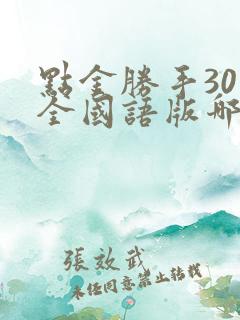 點金勝手30
全國語版哪
張效武
未经同意禁止转载